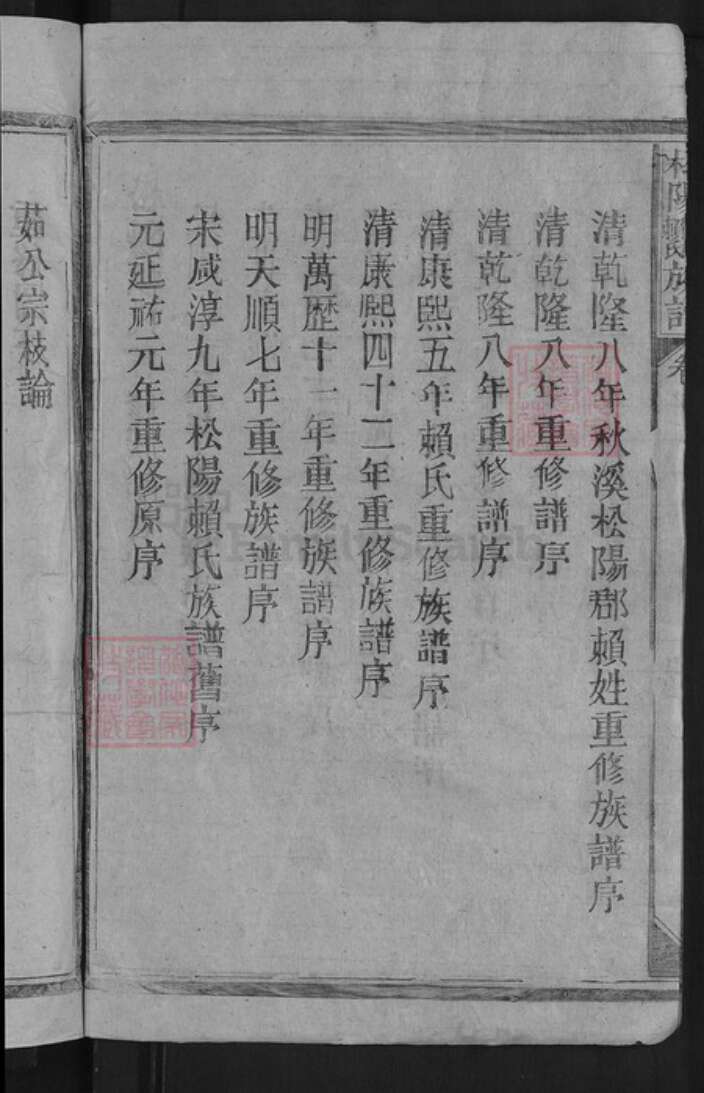 松陽賴氏族譜 卷
清乾隆八年秋溪松陽郡賴姓重修族譜序
清乾隆八年重修譜序
清乾隆八年重修譜序
清康熙五年賴氏重修族譜序
清康熙四十二年重修族譜序
明萬歷十一年重修族譜序
明天順七年重修族譜序
宋咸淳九年松陽賴氏族譜舊序
元延祐元年重修原序
茹公宗枝論
FamilySearch